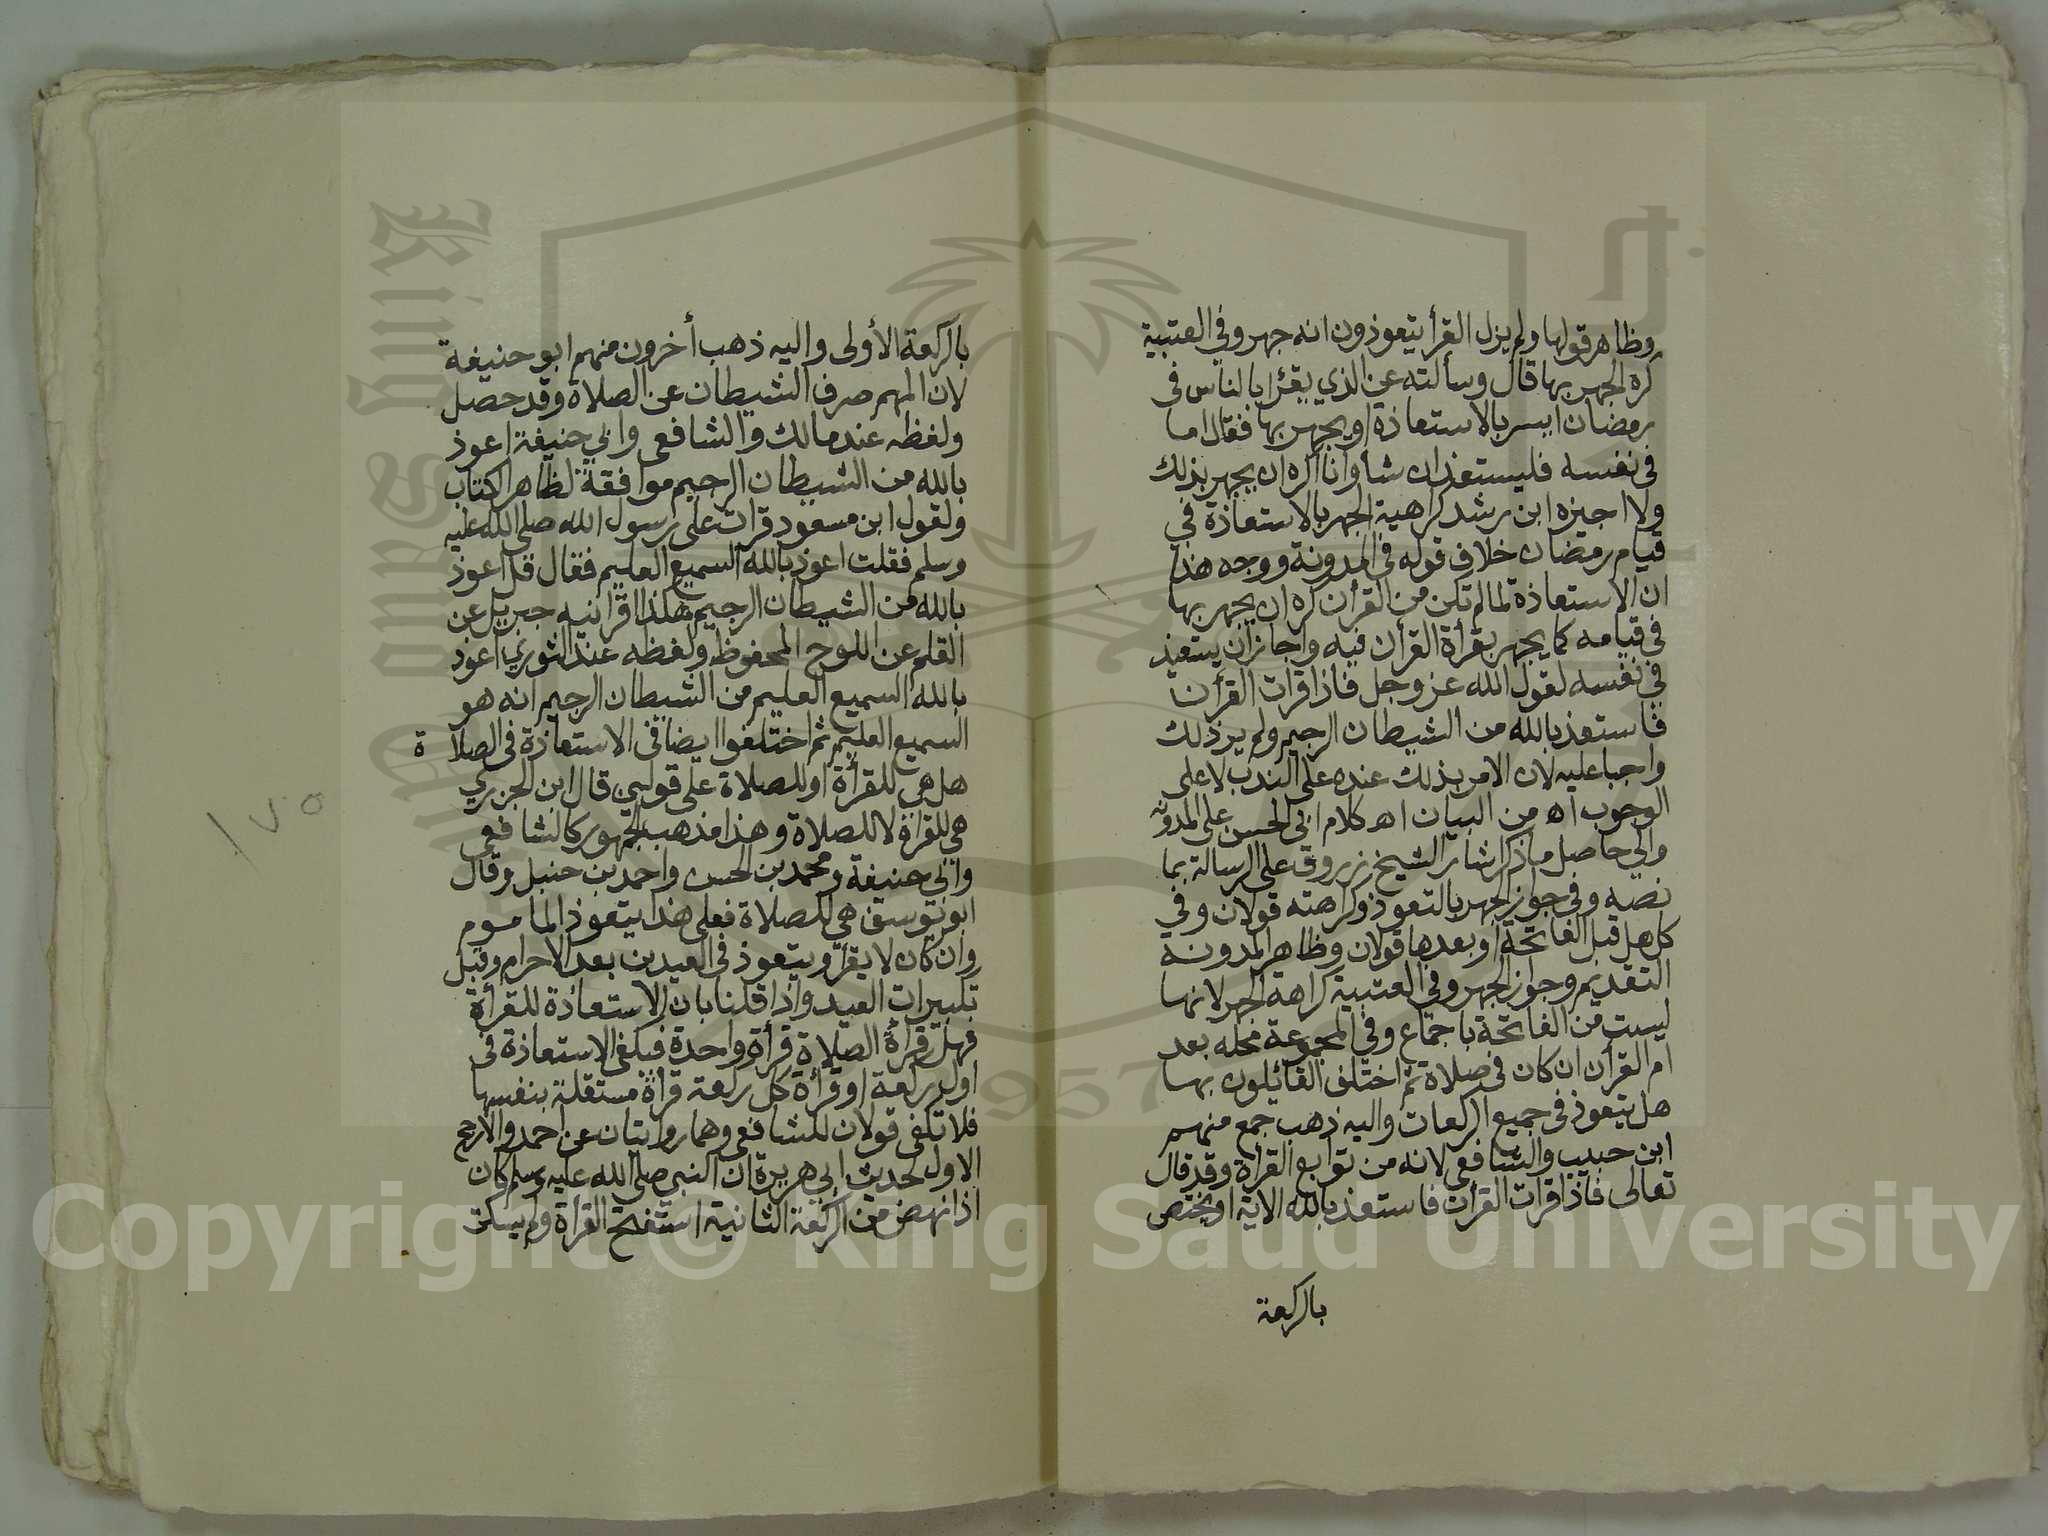 وظاهر قولها ولم يزل القرأ يتعوذون انه جهر وفي العتبية
كره الجهر بها قال وسألته عن الذي يقرأ بالناس في
رمضان ايسر بالاستعاذة او يجهر بها فقال اما
في نفسه فليستعذ ان شأ وانا اكره ان يجهر بذلك
ولا اجيزه ابن رشد كراهية الجهر بالاستعاذة في
قيام رمضان خلاف قوله في المدونة ووجه هذا
ان الاستعاذة لما لم تكن من القرأن كره ان يجهر بها
في قيامه كما يجهر بقرأة القرأن فيه واجاز ان يستعيذ
في نفسه لقول الله عز وجل فاذا قرات القرأن
فاستعذ بالله من الشيطان الرجيم ولم ير ذلك
واجبا عليه لان الامر بذلك عنده على الندب لا على
الوجوب اه من البيان اه كلام ابي الحسن على المدونه
والي حاصل ما ذكر اشار الشيخ زروق على الرسالة بما
نصه وفي جواز الجهر بالتعوذ وكراهته قولان وفي
كل هل قبل الفاتحة او بعدها قولان وظاهر المدونة
التقديم وجواز الجهر وفي العتبية كراهة الجهر لانها
ليست من الفاتحة باجماع وفي المجموعة محله بعد
ام القرأن ان كان في صلاة ثم اختلف القائلون بها
هل يتعوذ في جميع الركعات واليه ذهب جمع منهم
ابن حبيب والشافعي لانه من توابع القراة وقد قال
تعالى فاذا قرات القرأن فاستعذ بالله الاية او يختص
بالركعة
بالركعة الأولى واليه ذهب أخرون منهم ابو حنيفة
لان المهم صرف الشيطان عن الصلاة وقد حصل
ولفظه عند مالك والشافعي وابي حنيفة اعوذ
بالله من الشيطان الرجيم موافقة لظاهر الكتاب
ولقول ابن مسعود قرات على رسول الله صلى الله عليه
وسلم فقلت اعوذ بالله السميع العليم فقال قل اعوذ
بالله من الشيطان الرجيم هكذا اقرانيه جبريل عن
القلم عن اللوح المحفوظ ولفظه عند الثوري اعوذ
بالله السميع العليم من الشيطان الرجيم انه هو
السميع العليم ثم اختلفوا ايضا في الاستعاذة في الصلاة
هل هي للقرأة او للصلاة على قولين قال ابن الجزري
هي للقراة لا للصلاة وهذا مذهب الجمهور كالشافعي
وابي حنيفة ومحمد بن الحسن واحمد بن حنبل وقال
ابو يوسف هي للصلاة فعلى هذا يتعوذ الماموم
وان كان لا يقرأ ويتعوذ في العيدين بعد الاحرام وقبل
تكبيرات العيد واذا قلنا بان الاستعاذة للقرأة
فهل قرأة الصلاة قرأة واحدة فيكفي الاستعاذة في
اول ركعة او قرأة كل ركعة قراة مستقلة بنفسها
فلا تكفي قولان للشافعي وهما روايتان عن احمد والارجح
الاول لحديث ابي هريرة ان النبي صلى الله عليه وسلم كان
اذا نهض من الركعة الثانية استفتح القرأة ولم يسكت
١٧٥
King Saud University
1957
Copyright © King Saud University